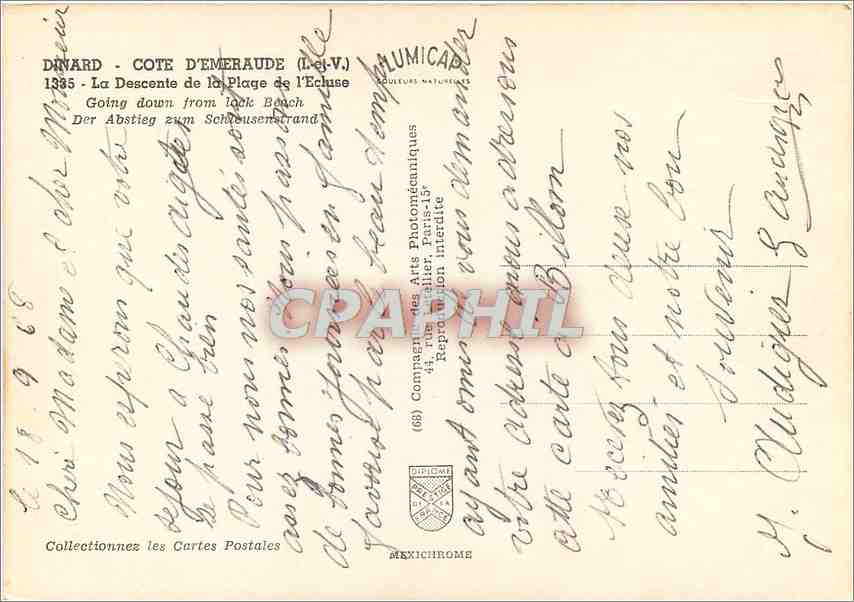 DINARD - COTE D'EMERAUDE (I.-et-V.)
1335 - La Descente de la Plage de l'Ecluse
Going down from lock Beach
Der Abstieg zum Schleusenstrand
LUMICAP
COULEURS NATURELLES
(68) Compagnie des Arts Photomécaniques
44, rue Letellier, Paris-15e
Reproduction interdite
DIPLOME
PRESTIGE
DE LA
FRANCE
MEXICHROME
Collectionnez les Cartes Postales
CPAPHIL
le 18. 9 68
Chère Madame et cher Monsieur
Nous esperons que votre
sejour a Chaudesaigues
se passe bien
Pour nous nos santés sont
assez bonnes nous passons
de bonnes journées en famille
favorisé par le beau temps
ayant omis de vous demander
votre adresse nous adressons
cette carte a Billom
Recevez tous deux nos
amitiés et notre bon
souvenir